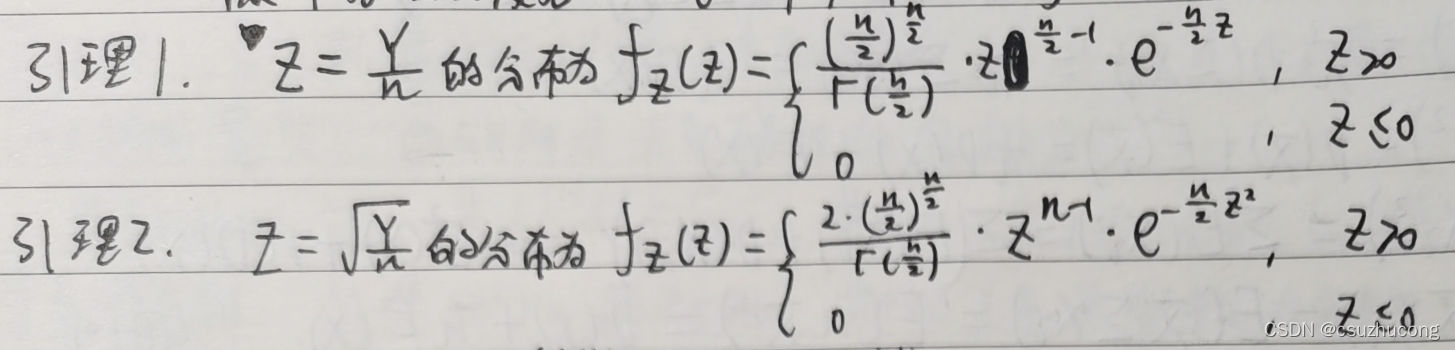 引理1. Z = Y/n 的分布为 f_Z(z) = { (n/2)^(n/2) / Γ(n/2) · z^(n/2 - 1) · e^(-n/2 z) , z>0
0 , z≤0
引理2. Z = √(Y/n) 的分布为 f_Z(z) = { 2·(n/2)^(n/2) / Γ(n/2) · z^(n-1) · e^(-n/2 z²) , z>0
0 z≤0
CSDN @csuzhucong